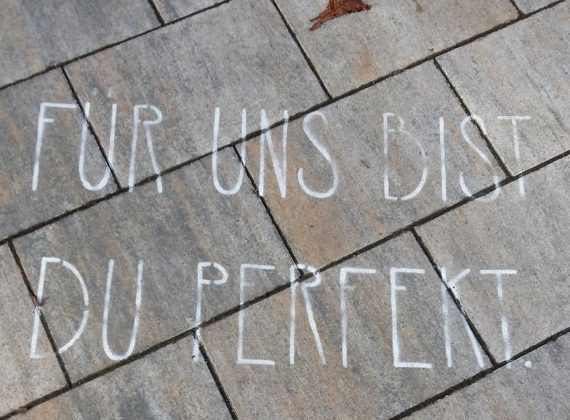 FÜR UNS BIST
DU PERFEKT.